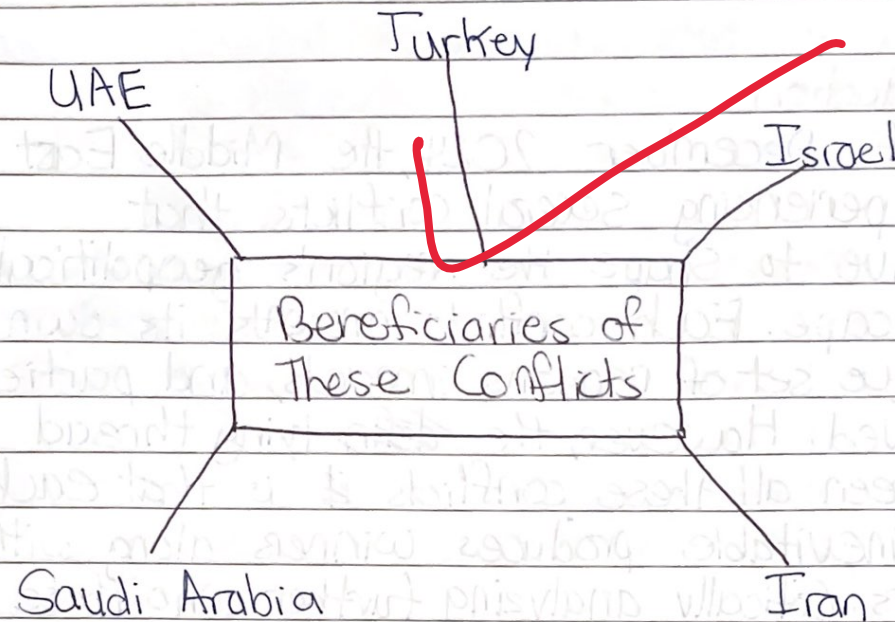 Turkey
UAE
Israel
Beneficiaries of
These Conflicts
Saudi Arabia
Iran